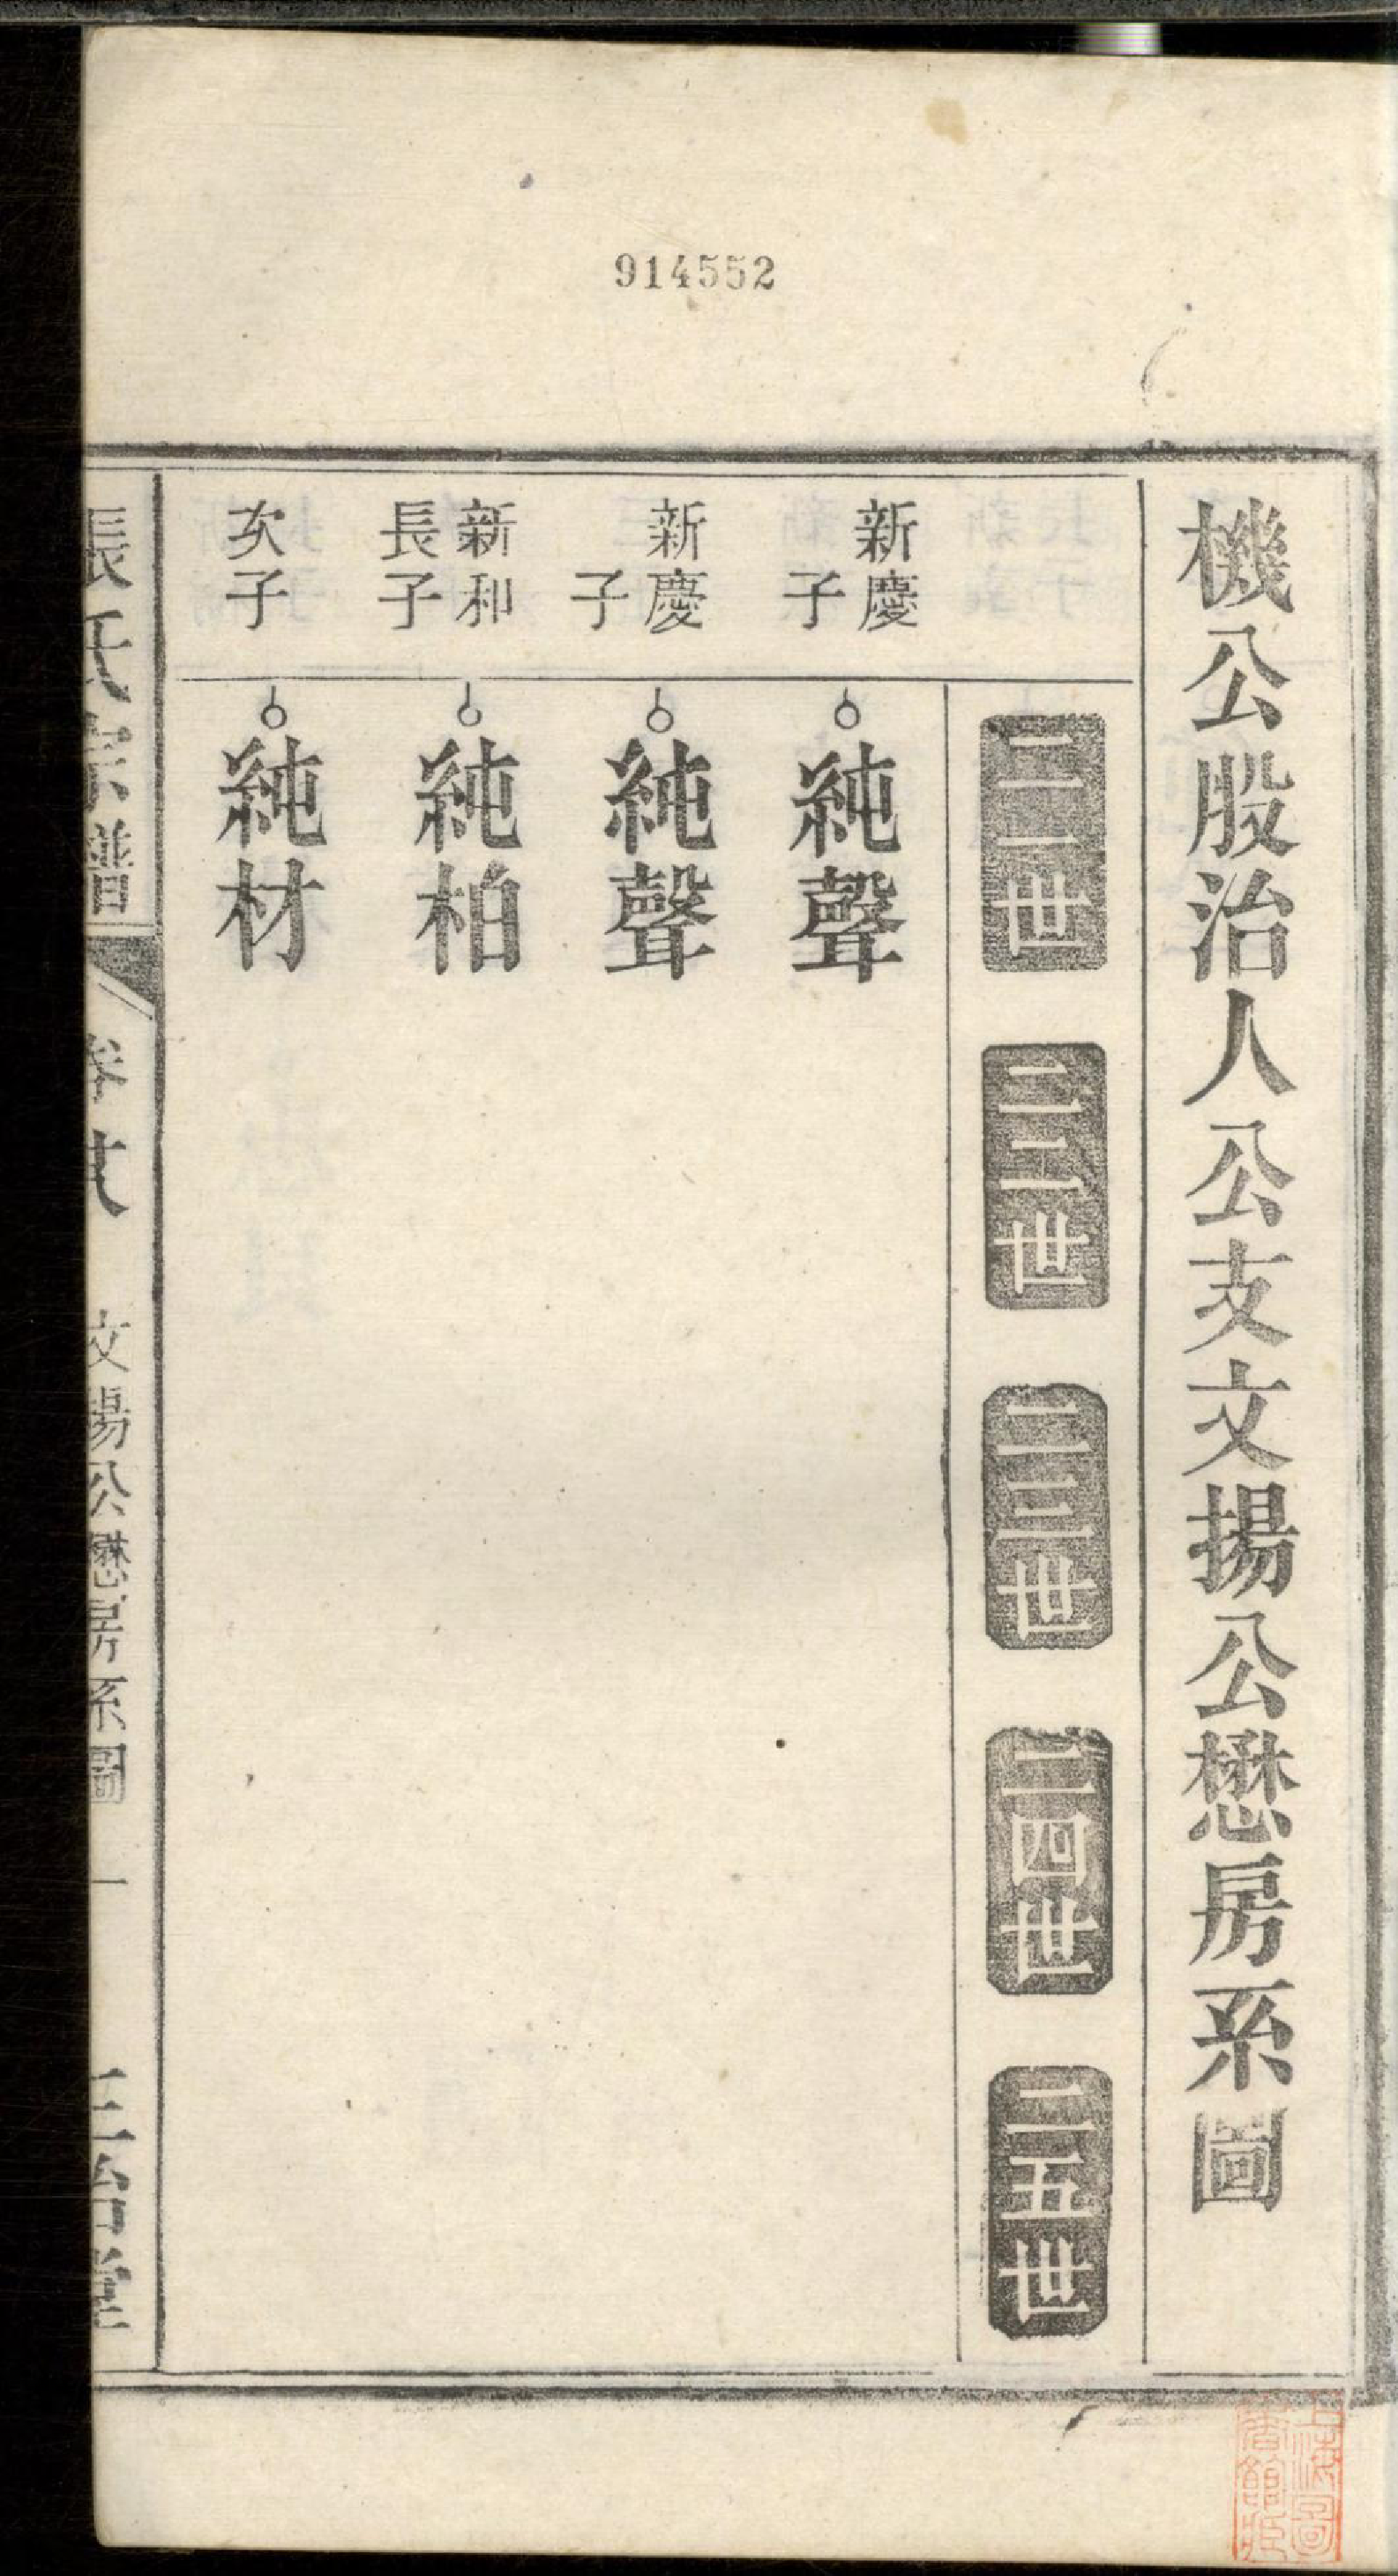 914552
機公股治人公支文揚公懋房系圖
二一世
二二世
二三世
二四世
二五世
新慶
子
純聲
新慶
子
純聲
新和
長子
純柏
次子
純材
張氏宗譜
卷十八
文揚公懋房系圖
一
三治堂
上海圖
書館藏